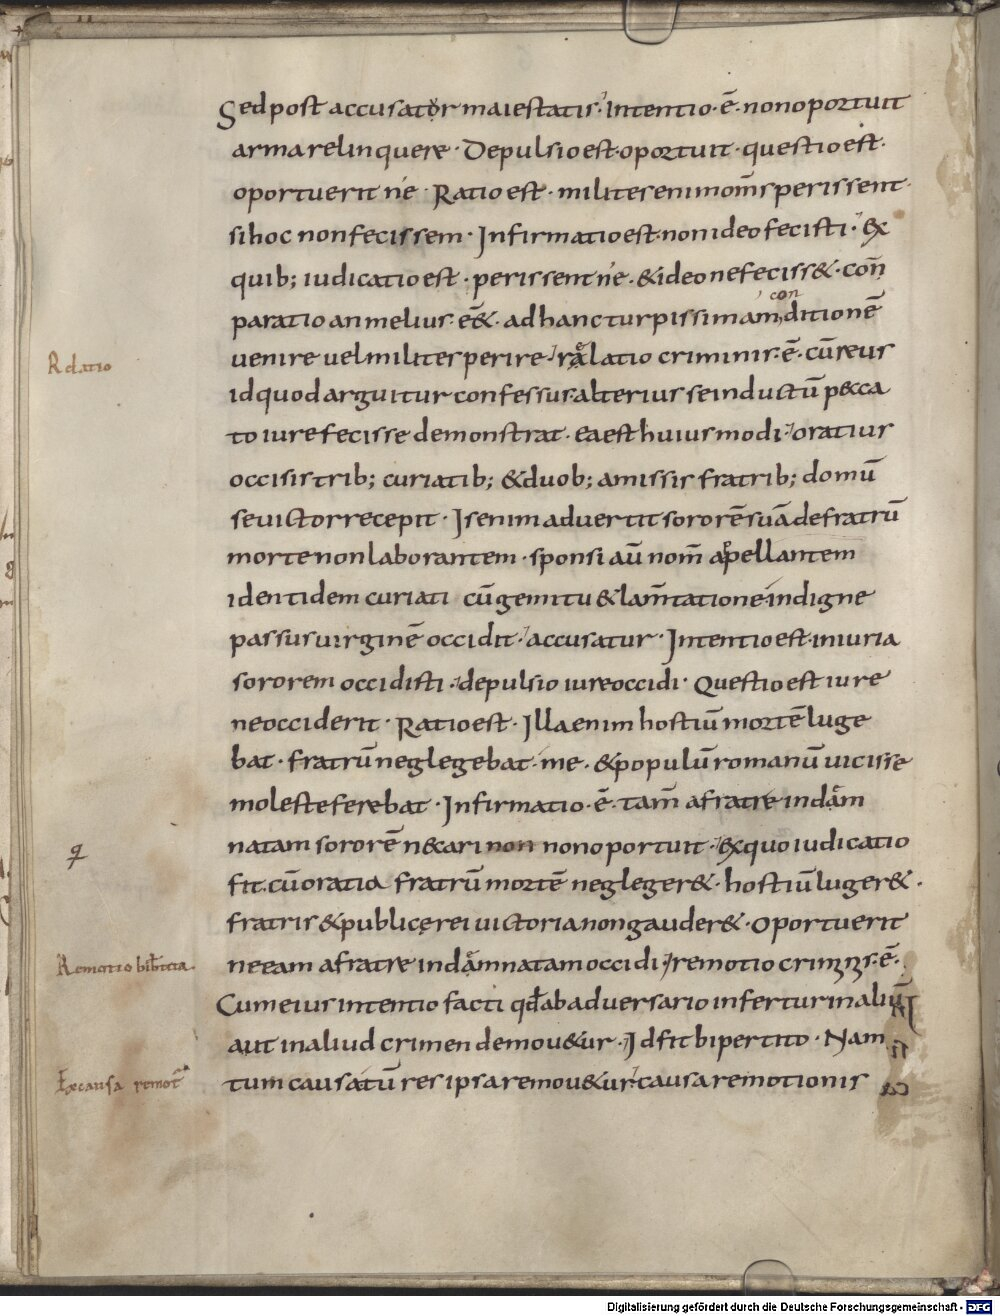 Sed post accusator maiestatis. Intentio. ē. non oportuit
arma relinquere. Depulsio est. oportuit. questio est.
oportuerit ne. Ratio est. milites enim om̄s perissent.
si hoc non fecissem. Infirmatio est. non ideo fecisti. Ex
quib; iudicatio est. perissent ne. & ideo ne feciss&. con̄
paratio an melius. eē&. ad hanc turpissimam conditionē
venire uel milites perire. relatio criminis. ē. cū reus
id quod arguitur confessus. alterius se inductū pecca
to iure fecisse demonstrat. ea est huiusmodi. oratius
occisis trib; curiatib; & duob; amissis fratrib; domū
se victor recepit. Is enim advertit sororē suā de fratrū
morte non laborantem. sponsi aū nom̄ appellantem
identidem curiati cū gemitu & lam̄tatione indigne
passus virginē occidit. accusatur. Intentio est. iniuria
sororem occidisti. depulsio iure occidi. Questio est iure
ne occiderit. Ratio est. Illa enim hostiū mortē luge
bat. fratrū neglegebat. me. & populū romanū uicisse
moleste ferebat. Infirmatio. ē. tam̄ a fratre indam
natam sororē necari non non oportuit. Ex quo iudicatio
fit. cū oratia fratrū mortē negleger&. hostiū luger&.
fratris & publicę rei victoria non gauder&. Oportuerit
Relatio
ne eam a fratre indamnatam occidi. remotio criminis. ē.
Remotio
Cum eius intentio facti qd̄ ab adversario infertur in aliū
aut in aliud crimen demou&ur. Id fit bipertito. Nam
tum causa tū res ipsa remou&ur. causa remotionis
Ex causa remot̄